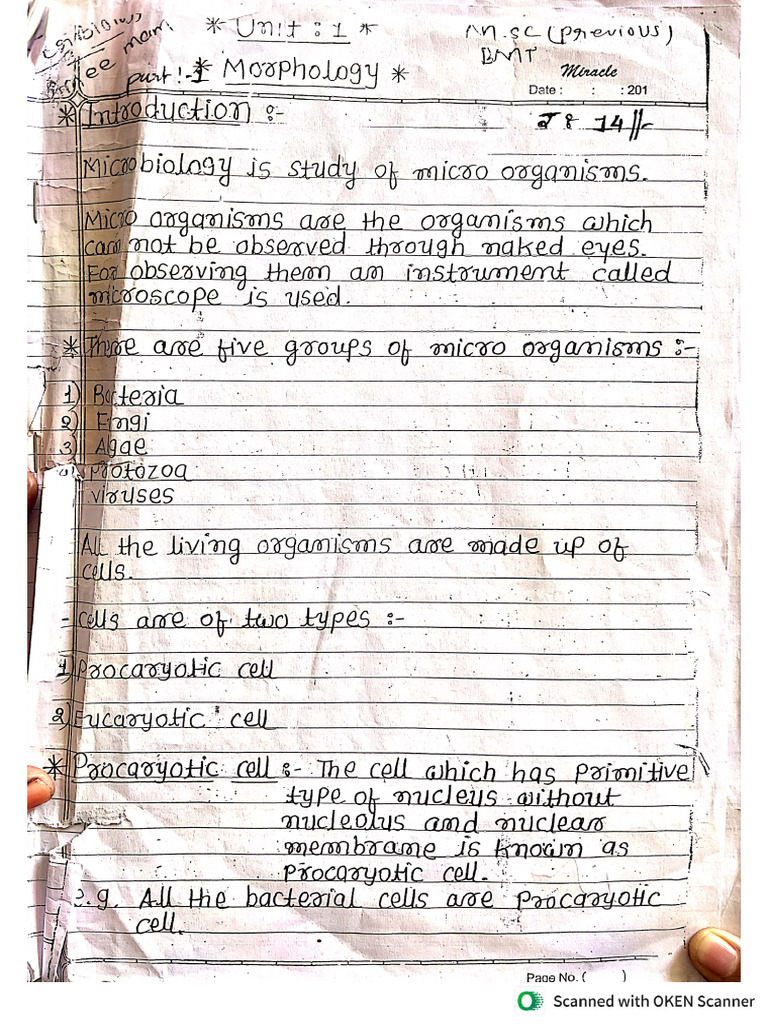 * Unit : 1 *
M.SC (Previous)
mam
BMT
part :- 1 * Morphology *
Miracle
Date : : : 201
* Introduction :-
Microbiology is study of micro organisms.
Micro organisms are the organisms which
can not be observed through naked eyes.
For observing them an instrument called
microscope is used.
* There are five groups of micro organisms :-
1) Bacteria
2) Fungi
3) Agae
Protozoa
viruses
All the living organisms are made up of
cells.
- cells are of two types :-
1) Procaryotic cell
2) Eucaryotic cell
* Procaryotic cell :- The cell which has primitive
type of nucleus without
nucleolus and nuclear
membrane is known as
procaryotic cell.
e.g. All the bacterial cells are procaryotic
cell.
Page No. ( )
Scanned with OKEN Scanner